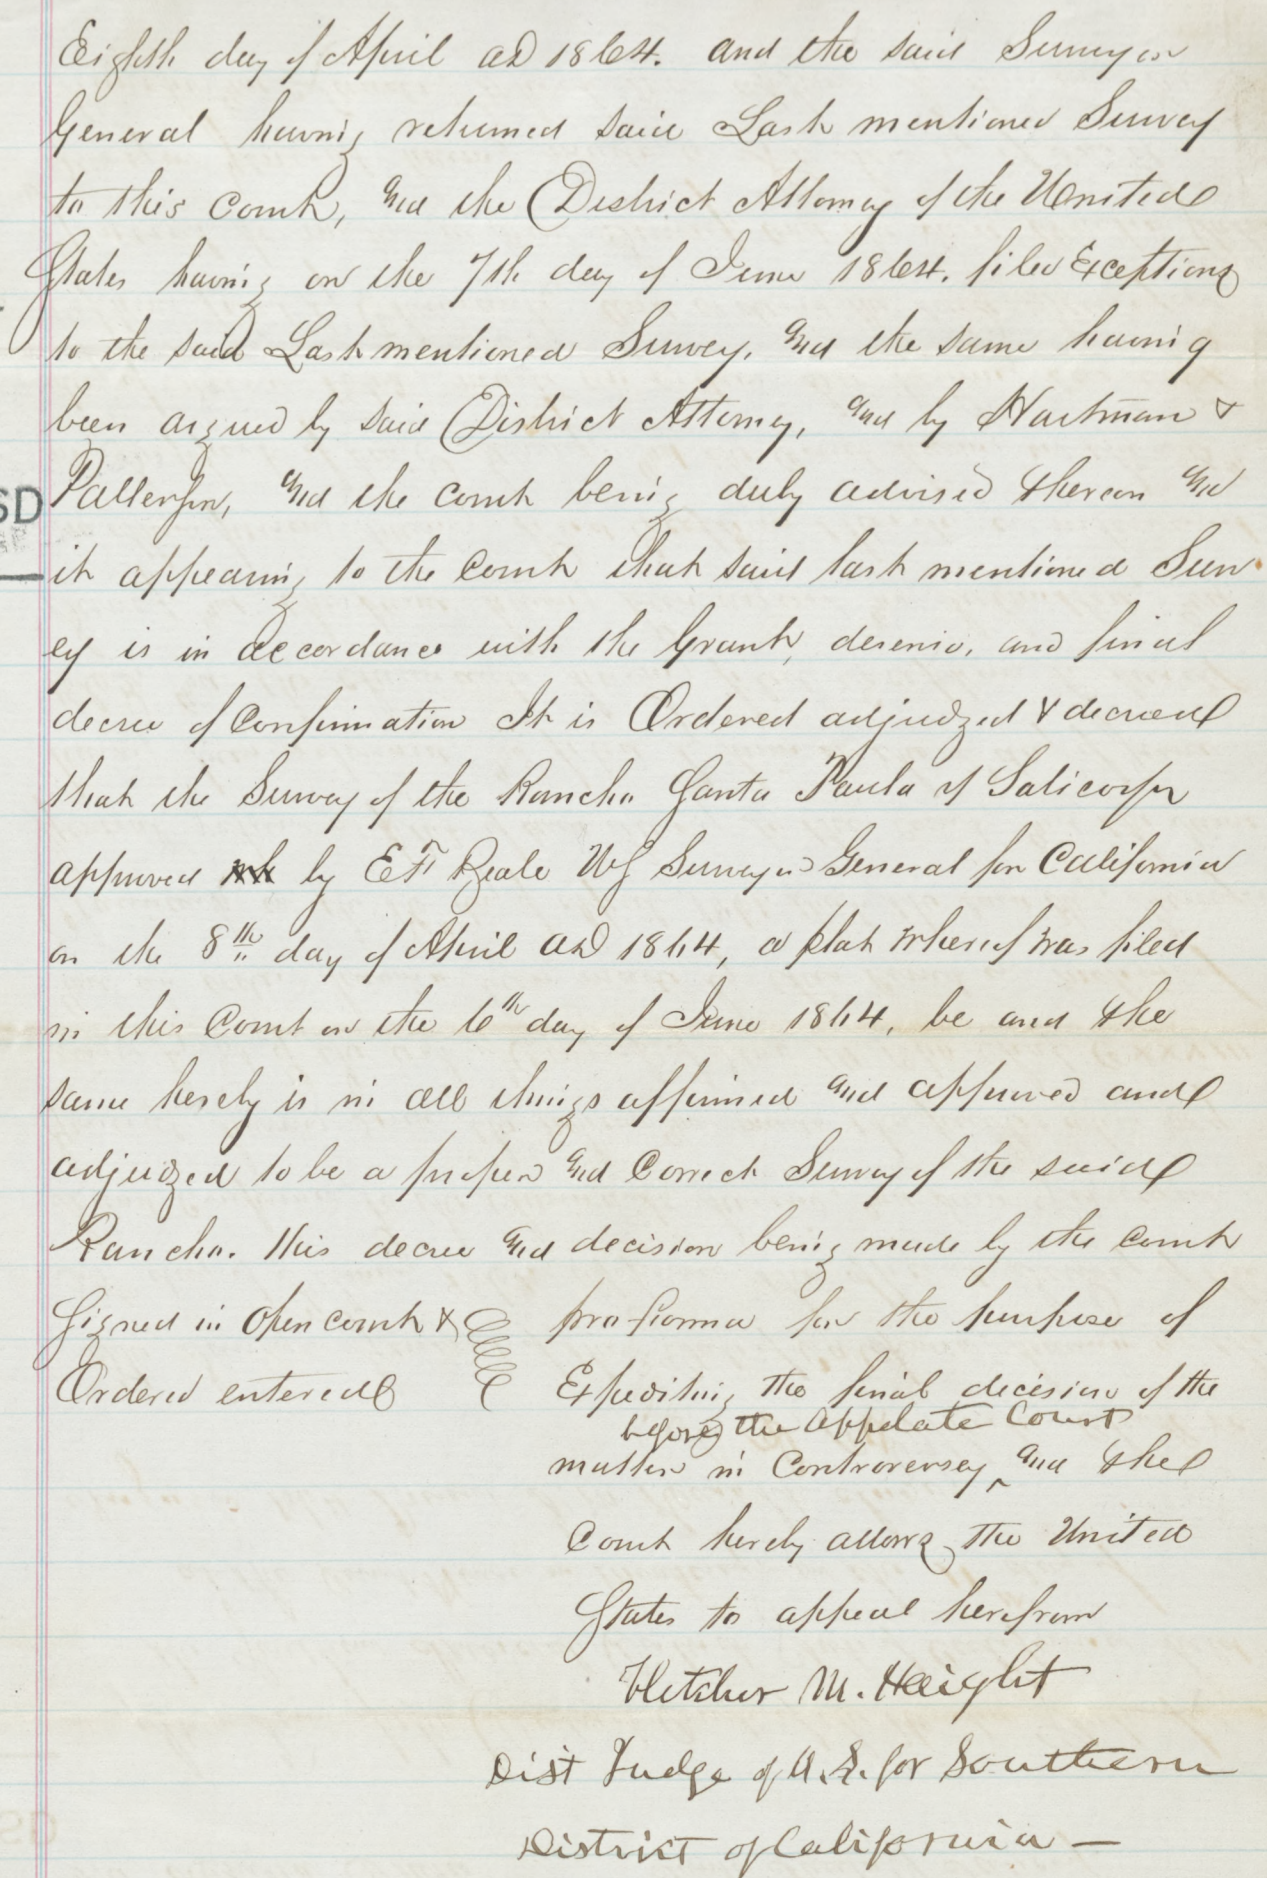 Eighth day of April AD 1864. and the said Surveyor
General having returned said Last mentioned Survey
to this Court, and the District Attorney of the United
States having on the 7th day of June 1864. filed Exceptions
to the said Last mentioned Survey, and the same having
been argued by said District Attorney, and by Hartman &
SD Patterson, and the court being duly advised thereon and
it appearing to the Court that said last mentioned Surv
ey is in accordance with the Grant, deseno, and final
decree of Confirmation It is Ordered adjudged & decreed
that the Survey of the Rancho Santa Paula y Saticoy
approved by E F Beale US Surveyor General for California
on the 8th day of April AD 1864, a plat whereof was filed
in this Court on the 6th day of June 1864, be and the
same hereby is in all things affirmed and approved and
adjudged to be a proper and Correct Survey of the said
Rancho. This decree and decision being made by the court
Signed in Open court & pro forma for the purpose of
Ordered entered Expediting the final decision of the
before the Appelate Court
matter in Controversey ^ and the
Court hereby allows the United
States to appeal herefrom
Fletcher M. Haight
Dist Judge of U.S. for Southern
District of California —